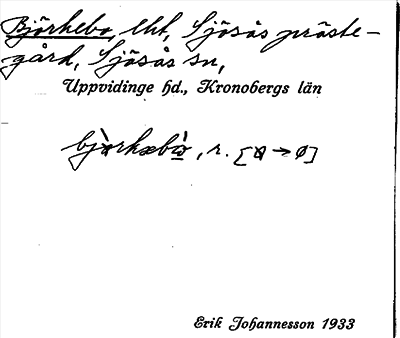 Björkebo, lht, Sjösås präste-
gård, Sjösås sn,
Uppvidinge hd., Kronobergs län
, r. [ɵ → ø]
Erik Johannesson 1933